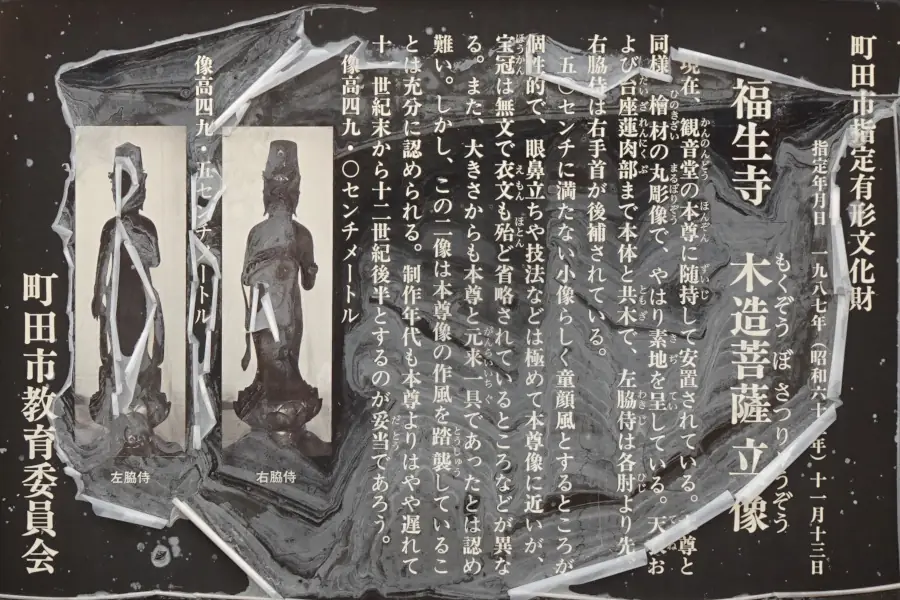 町田市指定有形文化財
指定年月日 一九八七年（昭和六十 年）十一月十三日
福生寺 木造菩薩立像
もくぞう ぼ さつりゅうぞう
現在、観音堂の本尊に随持して安置されている。 尊と
同様 檜材の丸彫像で、やはり素地を呈している。天 お
よび台座蓮肉部まで本体と共木で、左脇侍は各肘より先
右脇侍は右手首が後補されている。
五〇センチに満たない小像らしく童顔風とするところが
個性的で、眼鼻立ちや技法などは極めて本尊像に近いが、
宝冠は無文で衣文も殆ど省略されているところなどが異な
る。また、大きさからも本尊と元来一具であったとは認め
難い。しかし、この二像は本尊像の作風を踏襲しているこ
とは充分に認められる。制作年代も本尊よりはやや遅れて
十一世紀末から十二世紀後半とするのが妥当であろう。
像高四九・〇センチメートル
像高四九・五センチメートル
右脇侍
左脇侍
町田市教育委員会